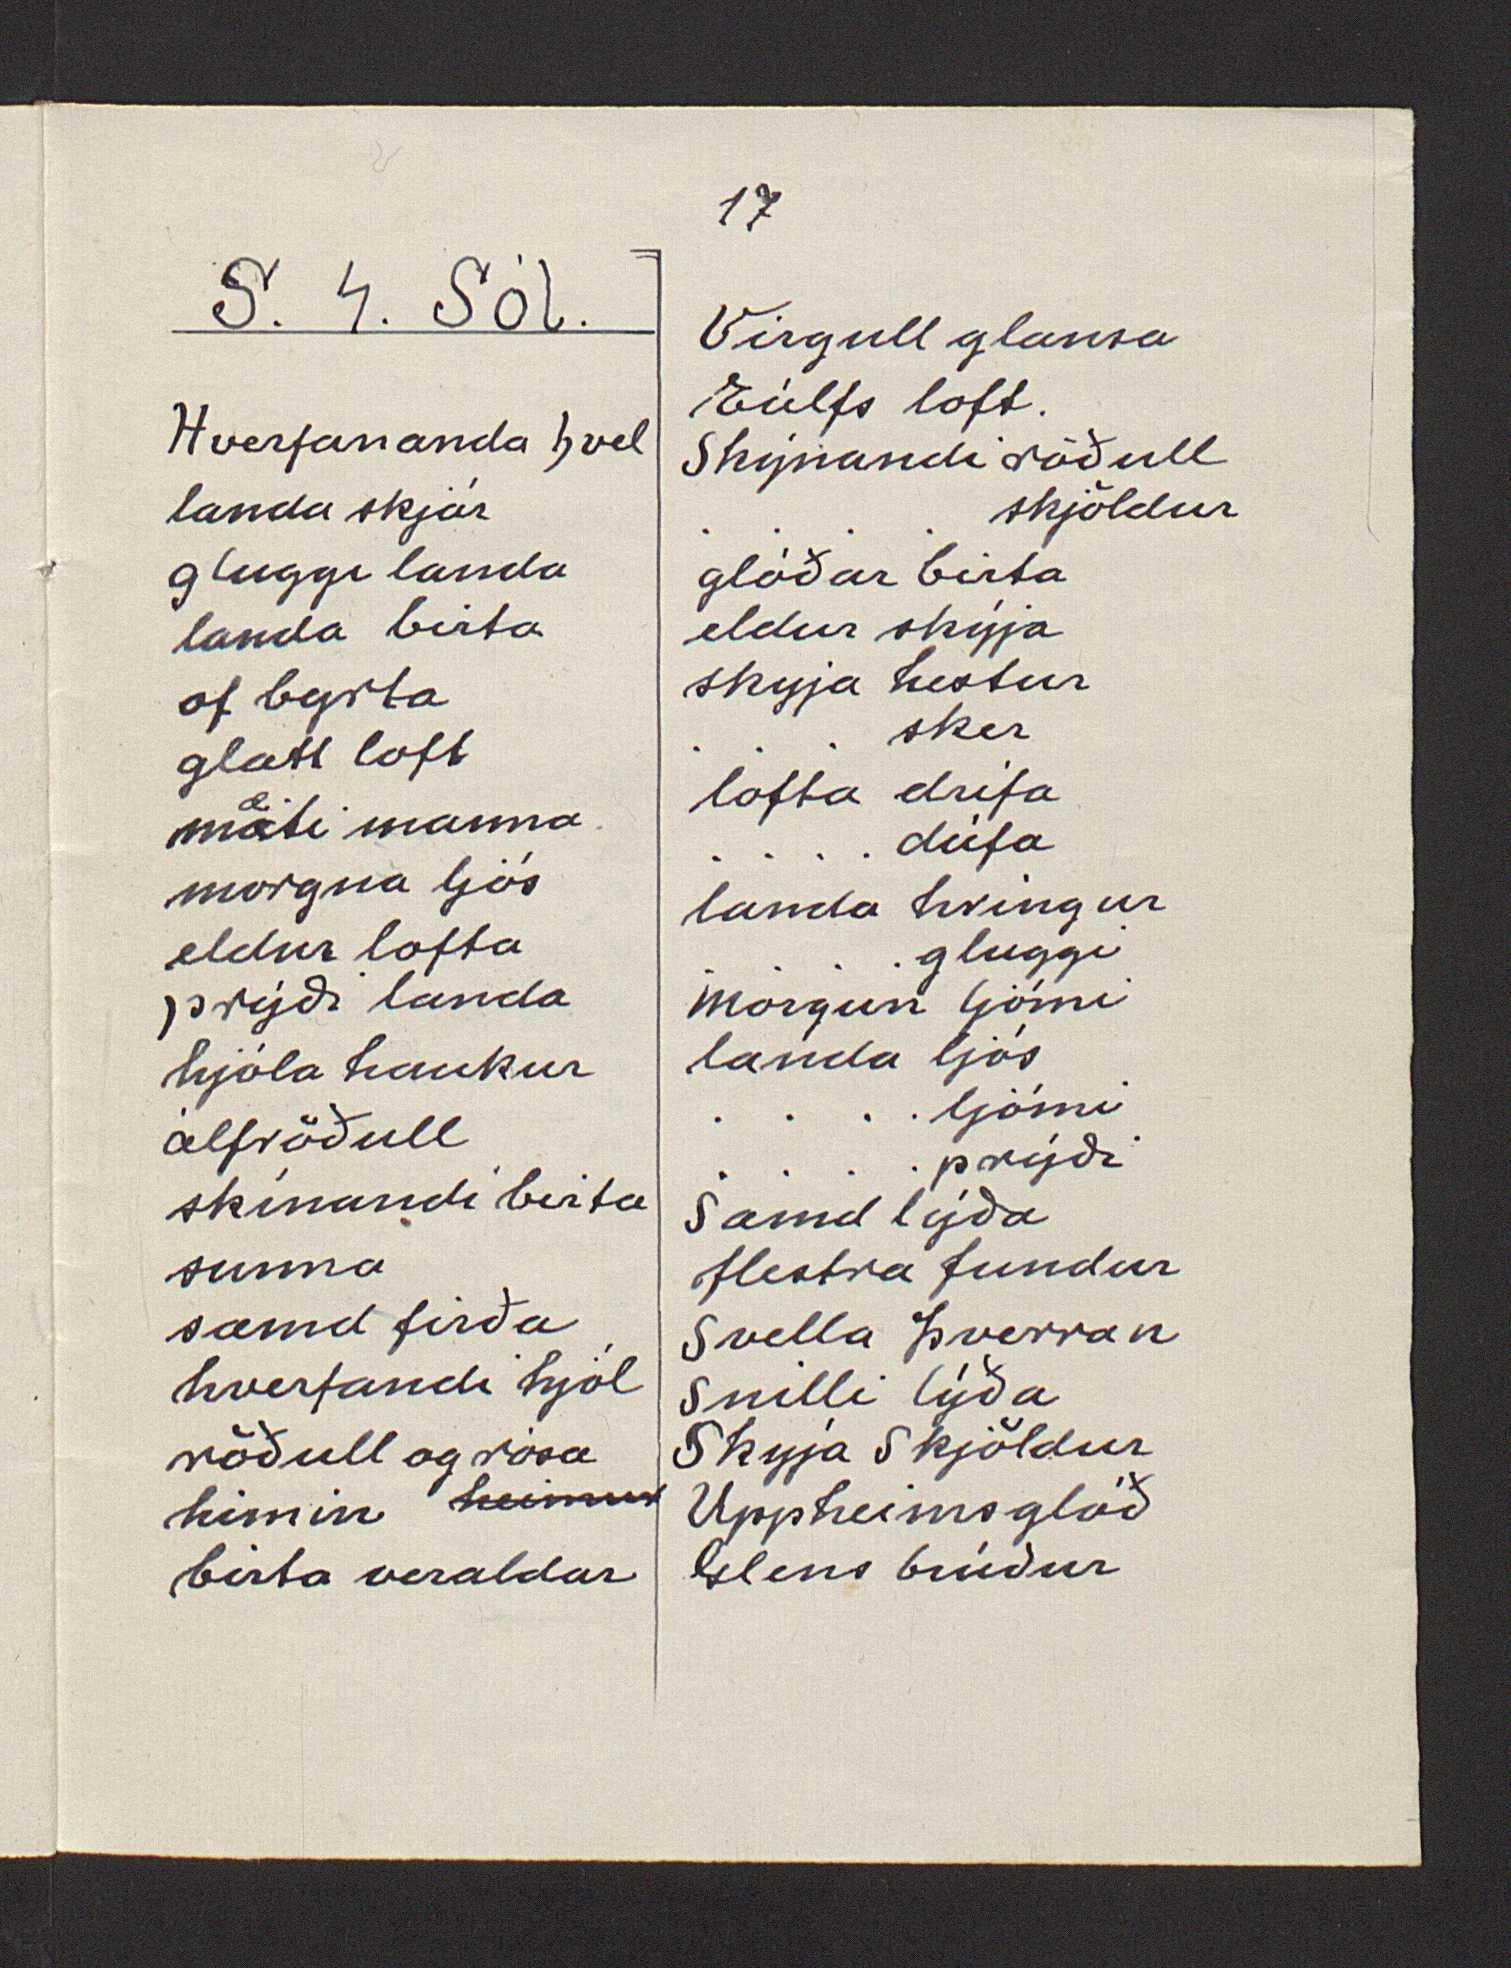 17
S. 4. Sól.
Hverfananda hvel
landa skjár
gluggi landa
landa birta
of byrta
glatt loft
mæti manna
morgna ljós
eldur lofta
prýði landa
hjóla haukur
álfröðull
skínandi birta
sunna
sæmd firða
hverfandi hjól
röðull og rósa
himin heimur
birta veraldar
Virgull glansa
loft.
Skýnandi röðull
. . . . skjöldur
glóðar birta
eldur skýja
skyja hestur
. . . sker
lofta drífa
. . . . dúfa
landa hringur
. . . . gluggi
Morgun ljómi
landa ljós
. . . . ljómi
. . . . prýði
Sæmd lýða
flestra fundur
Svella þverran
Snilli lýða
Skyja Skjöldur
Uppheimsglóð
Glens brúður